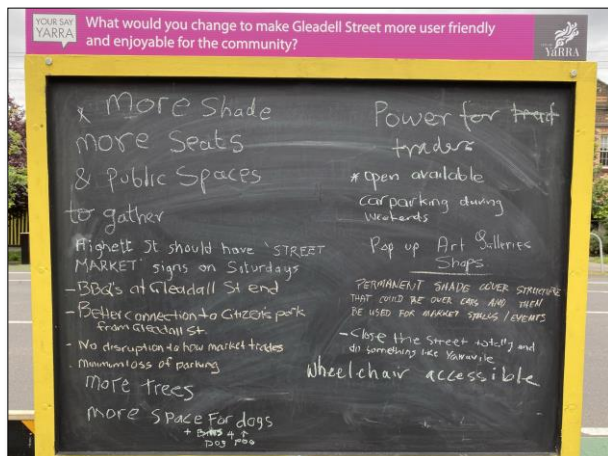 YOUR SAY
YARRA
What would you change to make Gleadell Street more user friendly
and enjoyable for the community?
YaRRA
x more Shade
more Seats
& Public Spaces
to gather
Highett St should have 'STREET
MARKET' signs on Saturdays
- BBQ's at Gleadall St end
- Better connection to Citizen's park
from Gleadall St.
- No disruption to how market trades
. Minimum loss of parking
more trees
more space For dogs
+ Bins 4
Dog Poo
Power for
traders
* open available
carparking during
weekends
Pop up Art Galleries
Shops
PERMANENT SHADE COVER STRUCTURE
THAT COULD BE OVER CARS AND THEN
BE USED FOR MARKET STALLS / EVENTS
- Close the street totally and
do something like Yarraville
wheelchair accessible